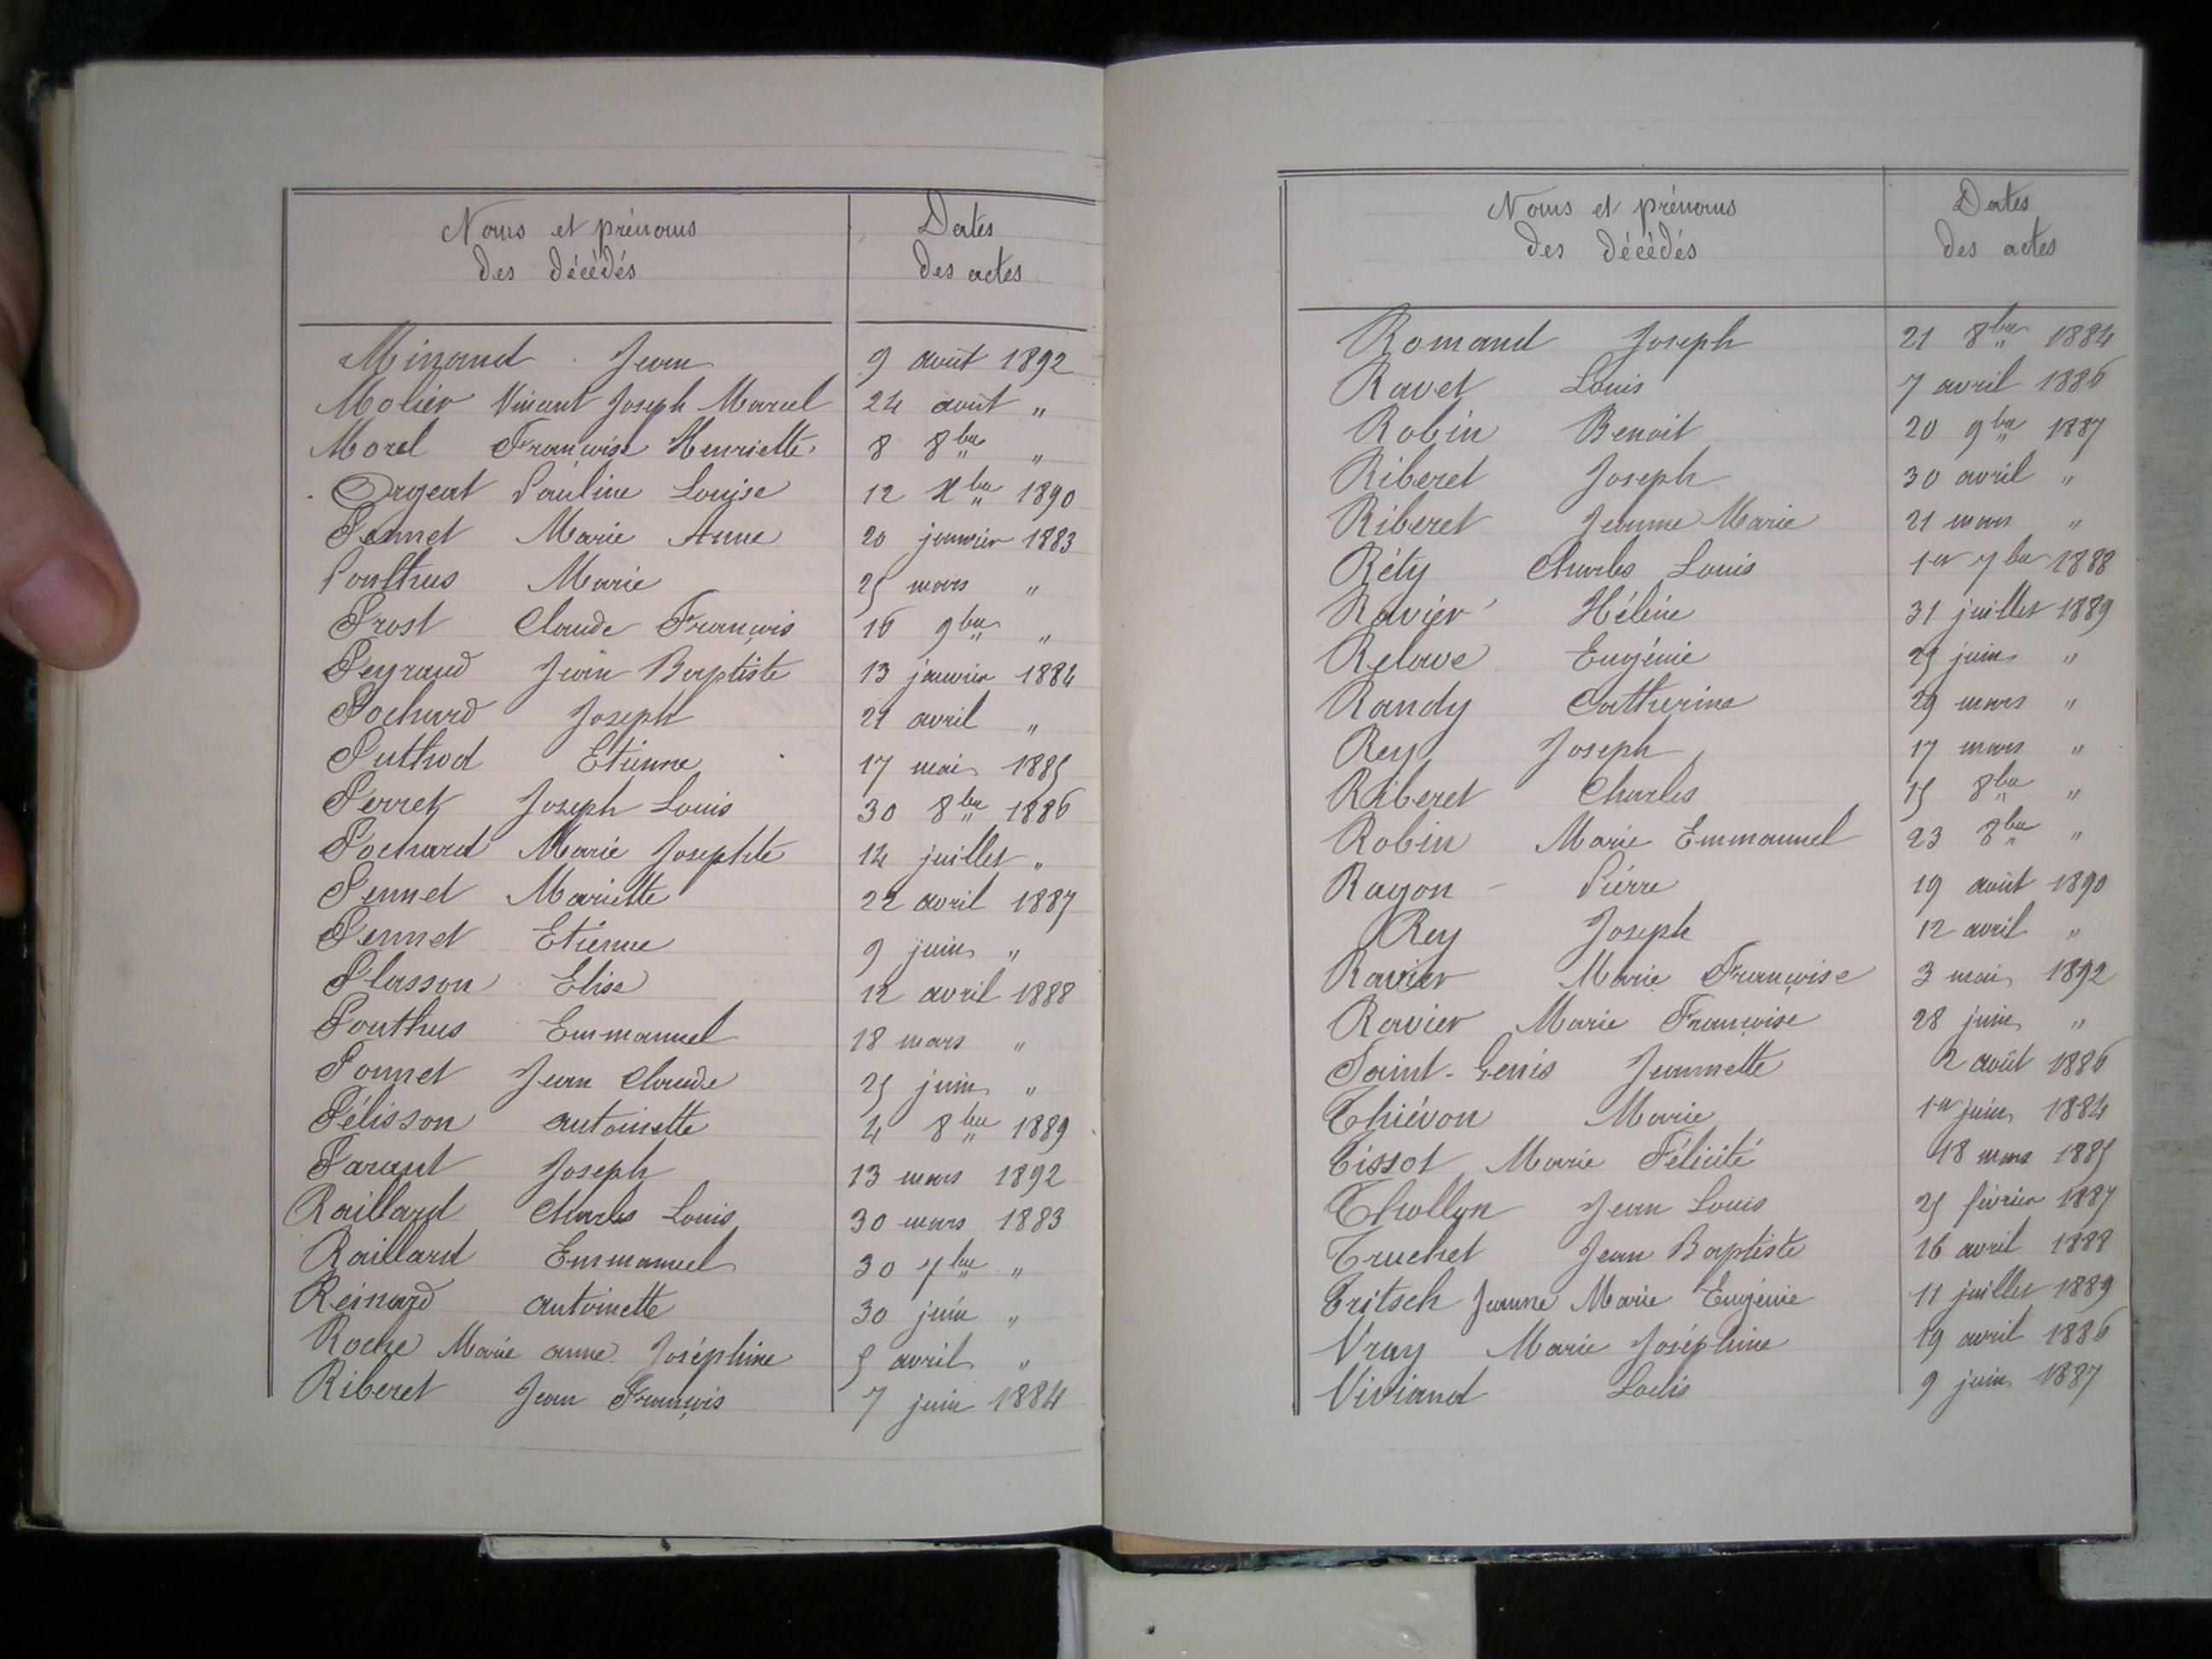 Noms et prénoms
des décédés
Dates
des actes
Minand Jean 9 août 1892
Molier Vincent Joseph Marcel 24 août "
Morel Françoise Henriette 8 8bre "
Orgeat Pauline Louise 12 Xbre 1890
Pennet Marie Anne 20 janvier 1883
Ponthus Marie 25 mars "
Prost Claude François 16 9bre "
Peyraud Jean Baptiste 13 janvier 1884
Pochard Joseph 21 avril "
Puthod Etienne 17 mai 1885
Perret Joseph Louis 30 8bre 1886
Pochard Marie Josephte 14 juillet "
Pennet Mariette 22 avril 1887
Pennet Etienne 9 juin "
Plasson Elise 12 avril 1888
Ponthus Emmanuel 18 mars "
Ponnet Jean Claude 25 juin "
Pélisson Antoinette 4 8bre 1889
Parant Joseph 13 mars 1892
Raillard Charles Louis 30 mars 1883
Raillard Emmanuel 30 7bre "
Reinard Antoinette 30 juin "
Roche Marie Anne Joséphine 5 avril "
Riberet Jean François 7 juin 1884
Noms et prénoms
des décédés
Dates
des actes
Romand Joseph 21 8bre 1884
Ravet Louis 7 avril 1886
Robin Benoit 20 9bre 1887
Riberet Joseph 30 avril "
Riberet Jeanne Marie 21 mars "
Réty Charles Louis 1er 7bre 1888
Ravier Héline 31 juillet 1889
Relave Eugénie 25 juin "
Randy Catherine 29 mars "
Rey Joseph 17 mars "
Riberet Charles 15 8bre "
Robin Marie Emmanuel 23 8bre "
Rayon Pierre 19 août 1890
Rey Joseph 12 avril "
Ravier Marie Françoise 3 mai 1892
Ravier Marie Françoise 28 juin "
Saint-Genis Jeannette 2 août 1886
Thiévon Marie 1er juin 1884
Tissot Marie Félicité 18 mars 1885
Thollon Jean Louis 25 février 1887
Truchet Jean Baptiste 16 avril 1888
Tritsch Jeanne Marie Eugénie 11 juillet 1889
Vray Marie Joséphine 19 avril 1886
Viviand Louis 9 juin 1887